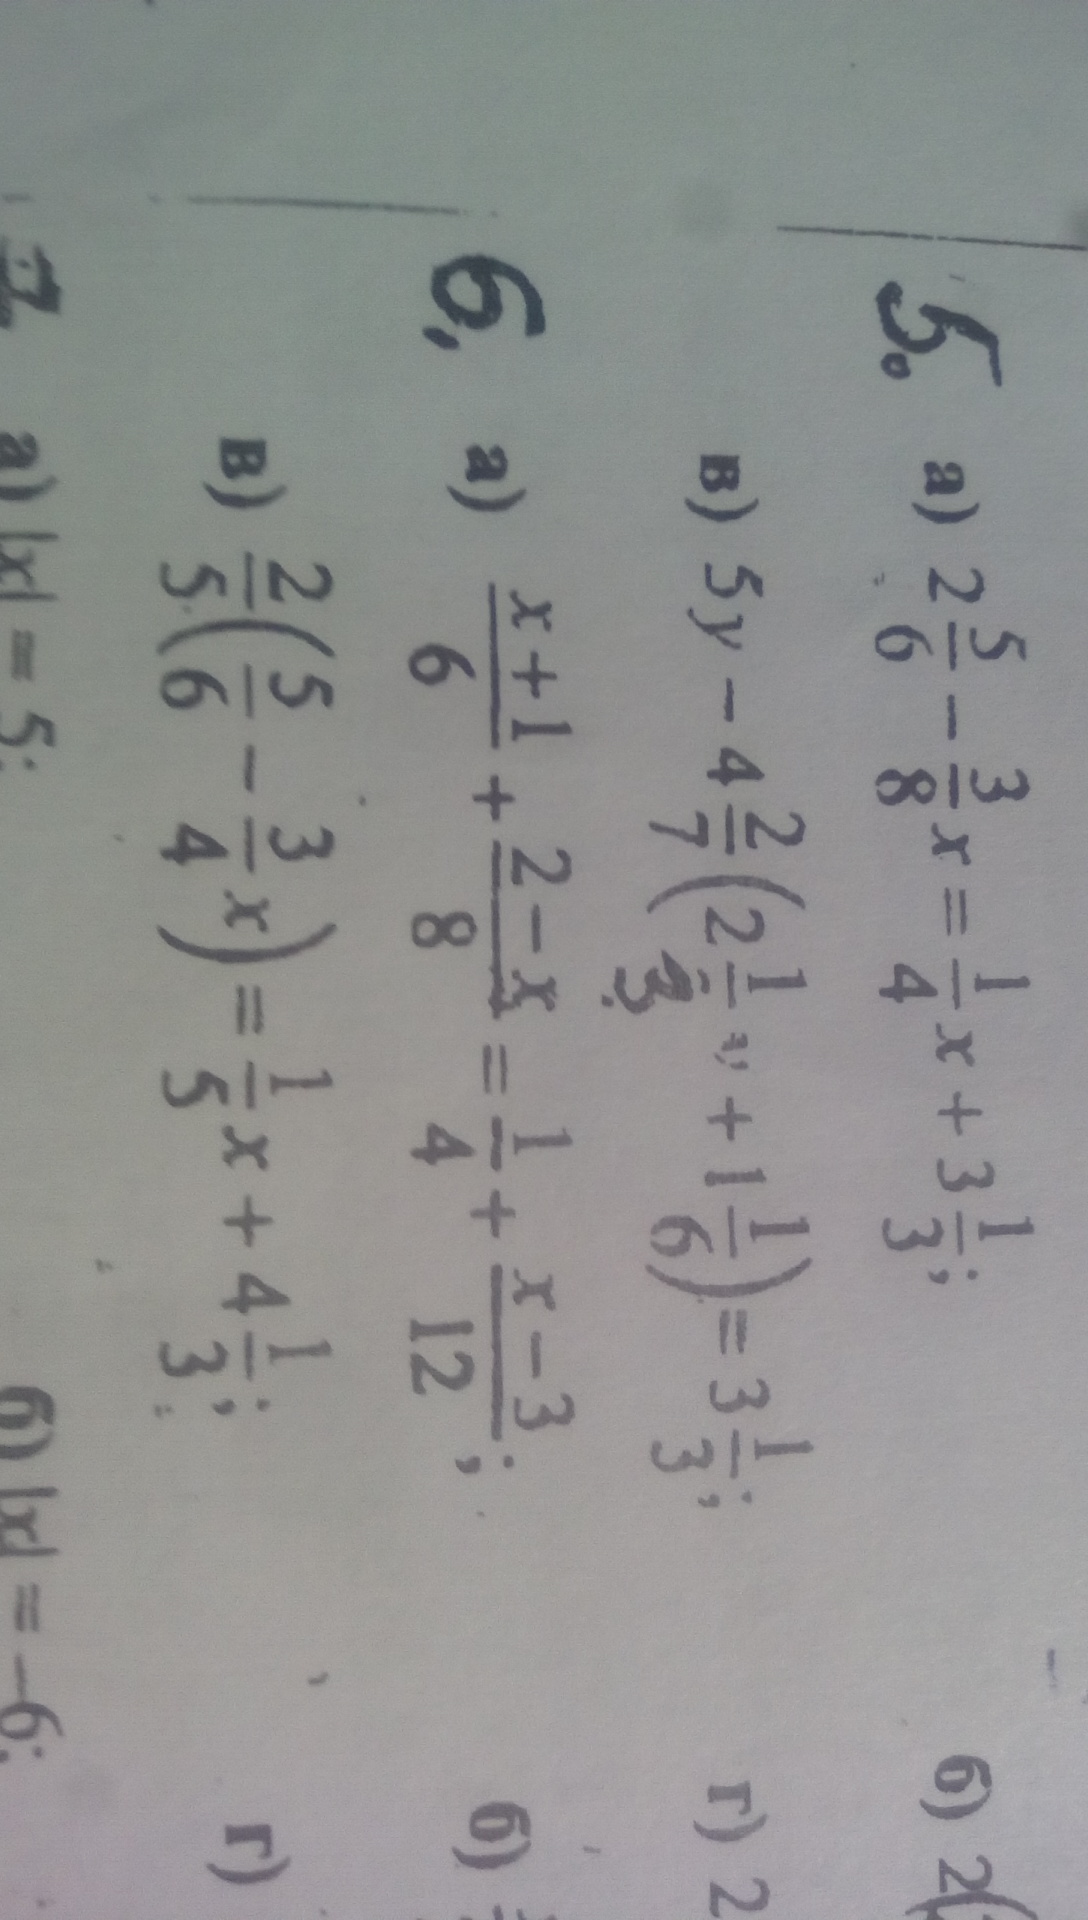 5. а) 2 5/6 − 3/8 x = 1/4 x + 3 1/3; б) 2(
в) 5y − 4 2/7 (2 1/3 y + 1 1/6) = 3 1/3; г) 2
6. а) (x+1)/6 + (2−x)/8 = 1/4 + (x−3)/12; б)
в) 2/5 (5/6 − 3/4 x) = 1/5 x + 4 1/3; г)
7. а) |x| = 5; б) |x| = −6;